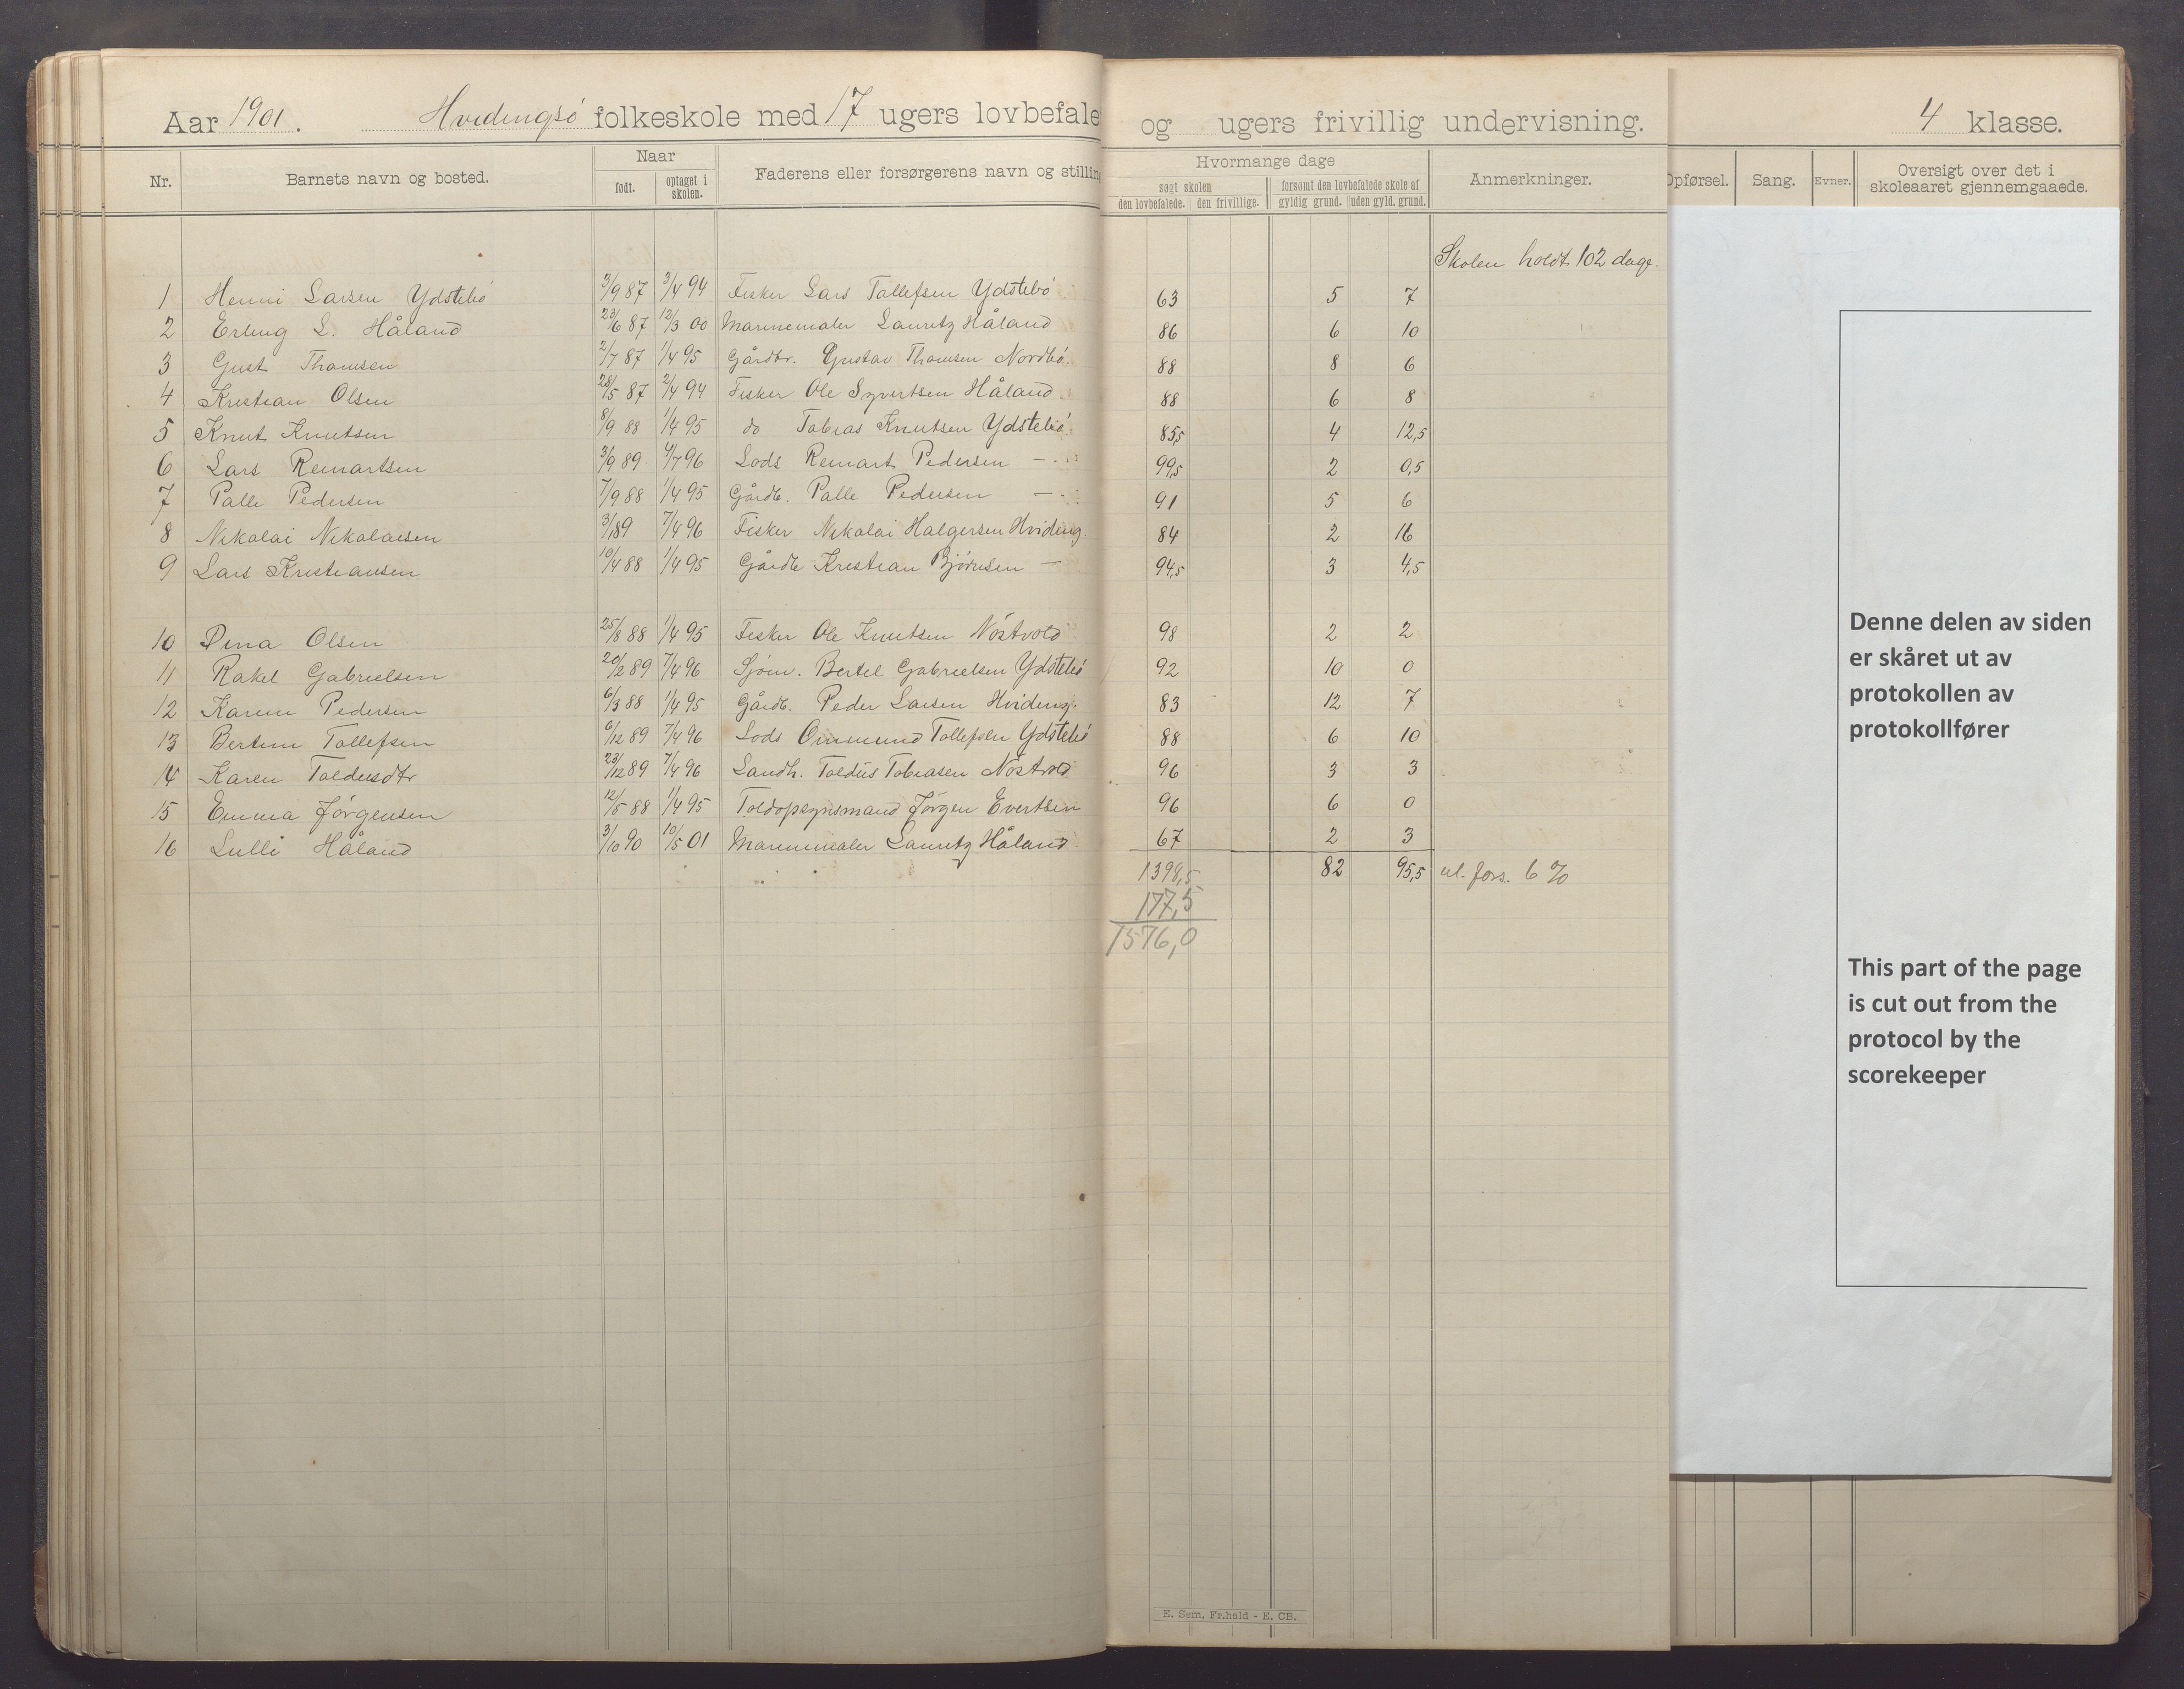 Aar 1901. Hvedingsö folkeskole med 17 ugers lovbefale og ugers frivillig undervisning. 4 klasse.
Nr. Barnets navn og bosted. Naar født. optaget i skolen. Faderens eller forsørgerens navn og stilling Hvormange dage søgt skolen den lovbefalede. den frivillige. forsømt den lovbefalede skole af gyldig grund. uden gyld. grund. Anmerkninger. Opførsel. Sang. Evner. Oversigt over det i skoleaaret gjennemgaaede.
Skolen holdt 102 dage.
1 Henni Larsen Ydstebö 3/9 87 3/4 94 Fisker Lars Tollefsen Ydstebö 63 5 7
2 Erling L. Håland 23/6 87 12/3 00 Marinemaler Lauritz Håland 86 6 10
3 Gust Thomsen 2/7 87 1/4 95 Gårdbr. Gustav Thomsen Nordbö. 88 8 6
4 Kristian Olsen 28/5 87 2/4 94 Fisker Ole Syvertsen Håland. 88 6 8
5 Knut Knutsen 8/9 88 1/4 95 do Tobias Knutsen Ydstebö. 85,5 4 12,5
6 Lars Reinartsen 3/9 89 4/7 96 Lods Reinart Pedersen — 99,5 2 0,5
7 Palle Pedersen 7/9 88 1/4 95 Gårdb. Palle Pedersen — 91 5 6
8 Nikolai Nikolaisen 3/1 89 7/4 96 Fisker Nikolai Halgersen Hviding. 84 2 16
9 Lars Kristiansen 10/4 88 1/4 95 Gårdb Kristian Bjørnsen — 94,5 3 4,5
10 Dina Olsen 25/8 88 1/4 95 Fisker Ole Knutsen Nöstvold 98 2 2
11 Rakel Gabrielsen 20/2 89 7/4 96 Sjöm. Bertel Gabrielsen Ydstebö 92 10 0
12 Karen Pedersen 6/3 88 1/4 95 Gårdb. Peder Larsen Hviding. 83 12 7
13 Bertine Tollefsen 6/12 89 7/4 96 Lods Ommund Tollefsen Ydstebö 88 6 10
14 Karen Toldusdtr 23/12 89 7/4 96 Landh. Toldus Tobiasen Nöstvold 96 3 3
15 Emma Jörgensen 12/5 88 1/4 95 Toldopsynsmand Jörgen Evertsen 96 6 0
16 Lulli Håland 3/10 90 10/5 01 Marinemaler Lauritz Håland 67 2 3
1398,5 82 95,5 ul. fors. 6 %
177,5
1576,0
Denne delen av siden
er skåret ut av
protokollen av
protokollfører
This part of the page
is cut out from the
protocol by the
scorekeeper
E. Sem, Fr.hald - E. CB.